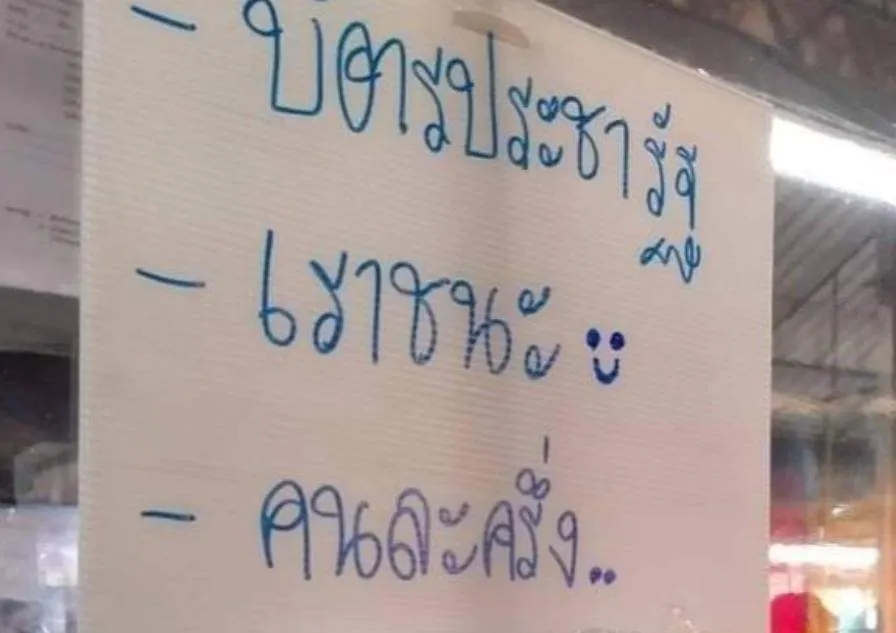 - บัตรประชารัฐ
- เราชนะ
- คนละครึ่ง..